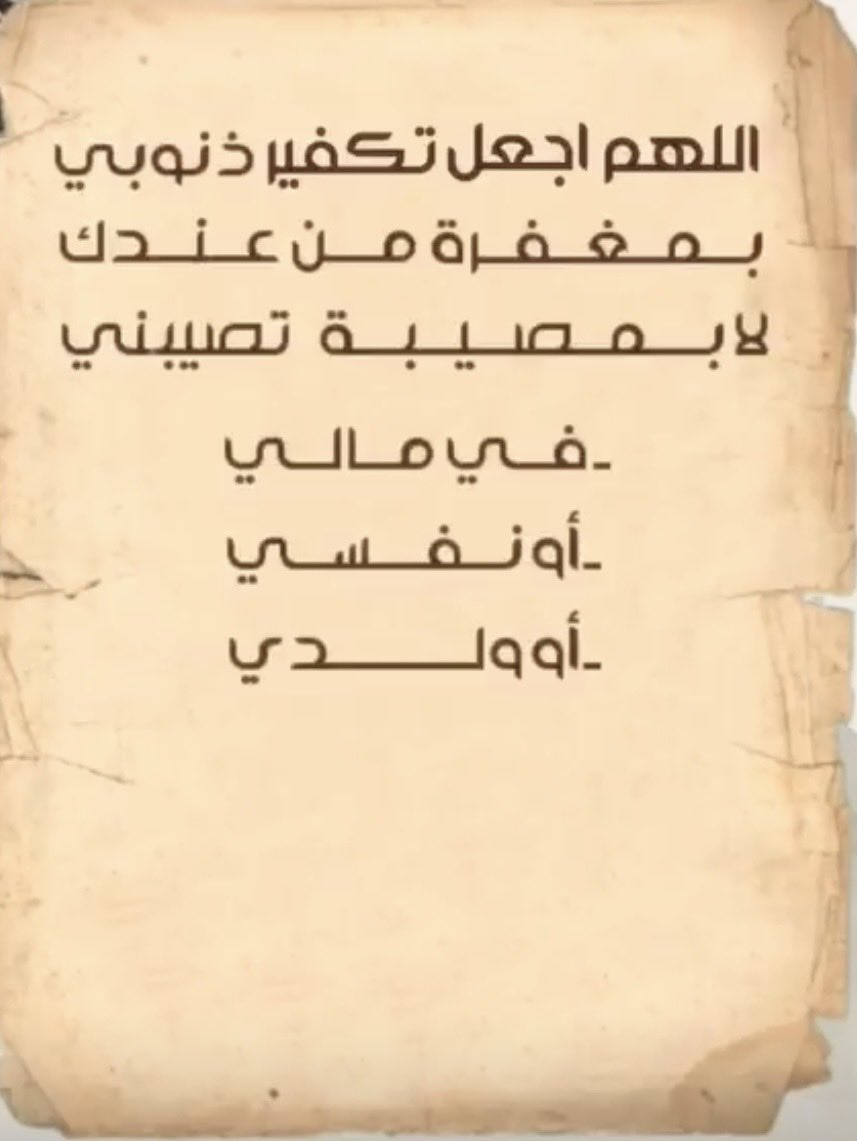 اللهم اجعل تكفير ذنوبي
بمغفرة من عندك
لا بمصيبة تصيبني
-في مالي
-أو نفسي
-أو ولدي